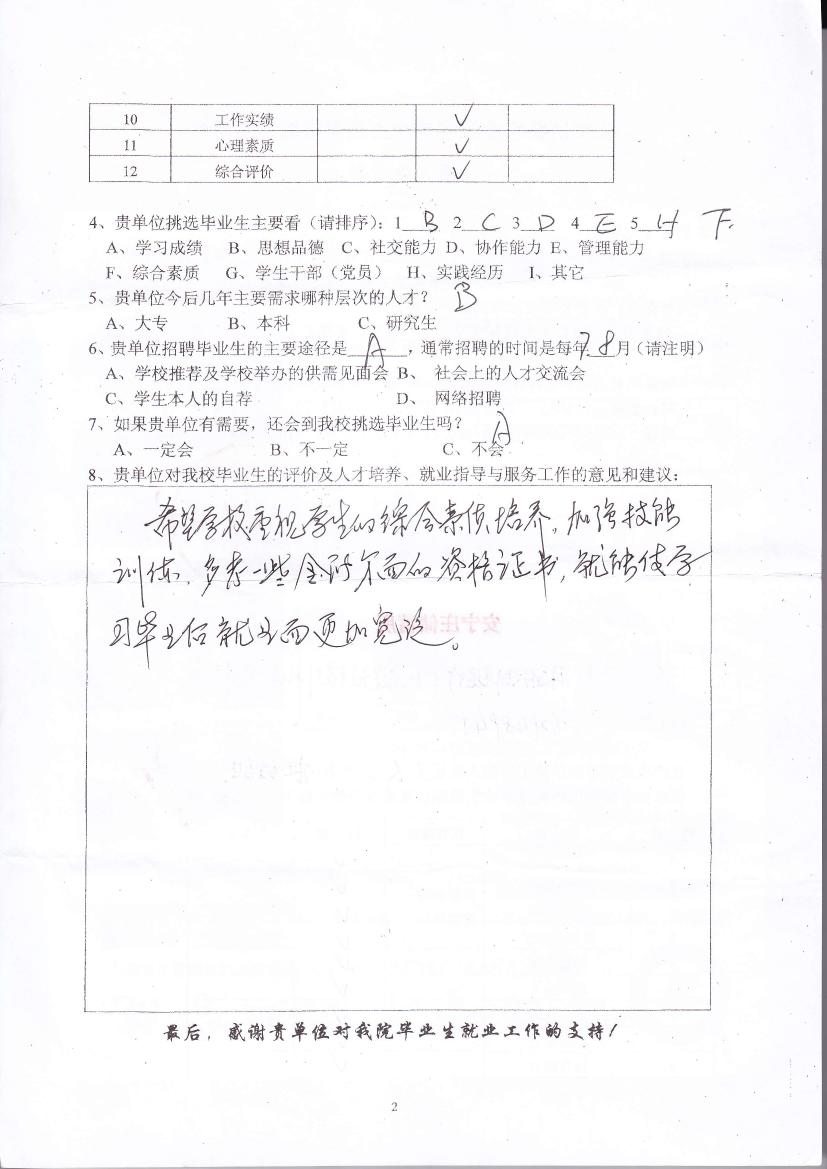 10 工作实绩 ✓
11 心理素质 ✓
12 综合评价 ✓
4、贵单位挑选毕业生主要看（请排序）：1 B 2 C 3 D 4 E 5 H F
A、学习成绩 B、思想品德 C、社交能力 D、协作能力 E、管理能力
F、综合素质 G、学生干部（党员） H、实践经历 I、其它
5、贵单位今后几年主要需求哪种层次的人才？ B
A、大专 B、本科 C、研究生
6、贵单位招聘毕业生的主要途径是 A ，通常招聘的时间是每年 7.8 月（请注明）
A、学校推荐及学校举办的供需见面会 B、 社会上的人才交流会
C、学生本人的自荐 D、 网络招聘
7、如果贵单位有需要，还会到我校挑选毕业生吗？ A
A、一定会 B、不一定 C、不会
8、贵单位对我校毕业生的评价及人才培养、就业指导与服务工作的意见和建议：
希望学校重视学生的综合素质培养，加强技能
训练，多考一些金融方面的资格证书，就能使学
习毕业后就业面更加宽泛。
最后，感谢贵单位对我院毕业生就业工作的支持！
2